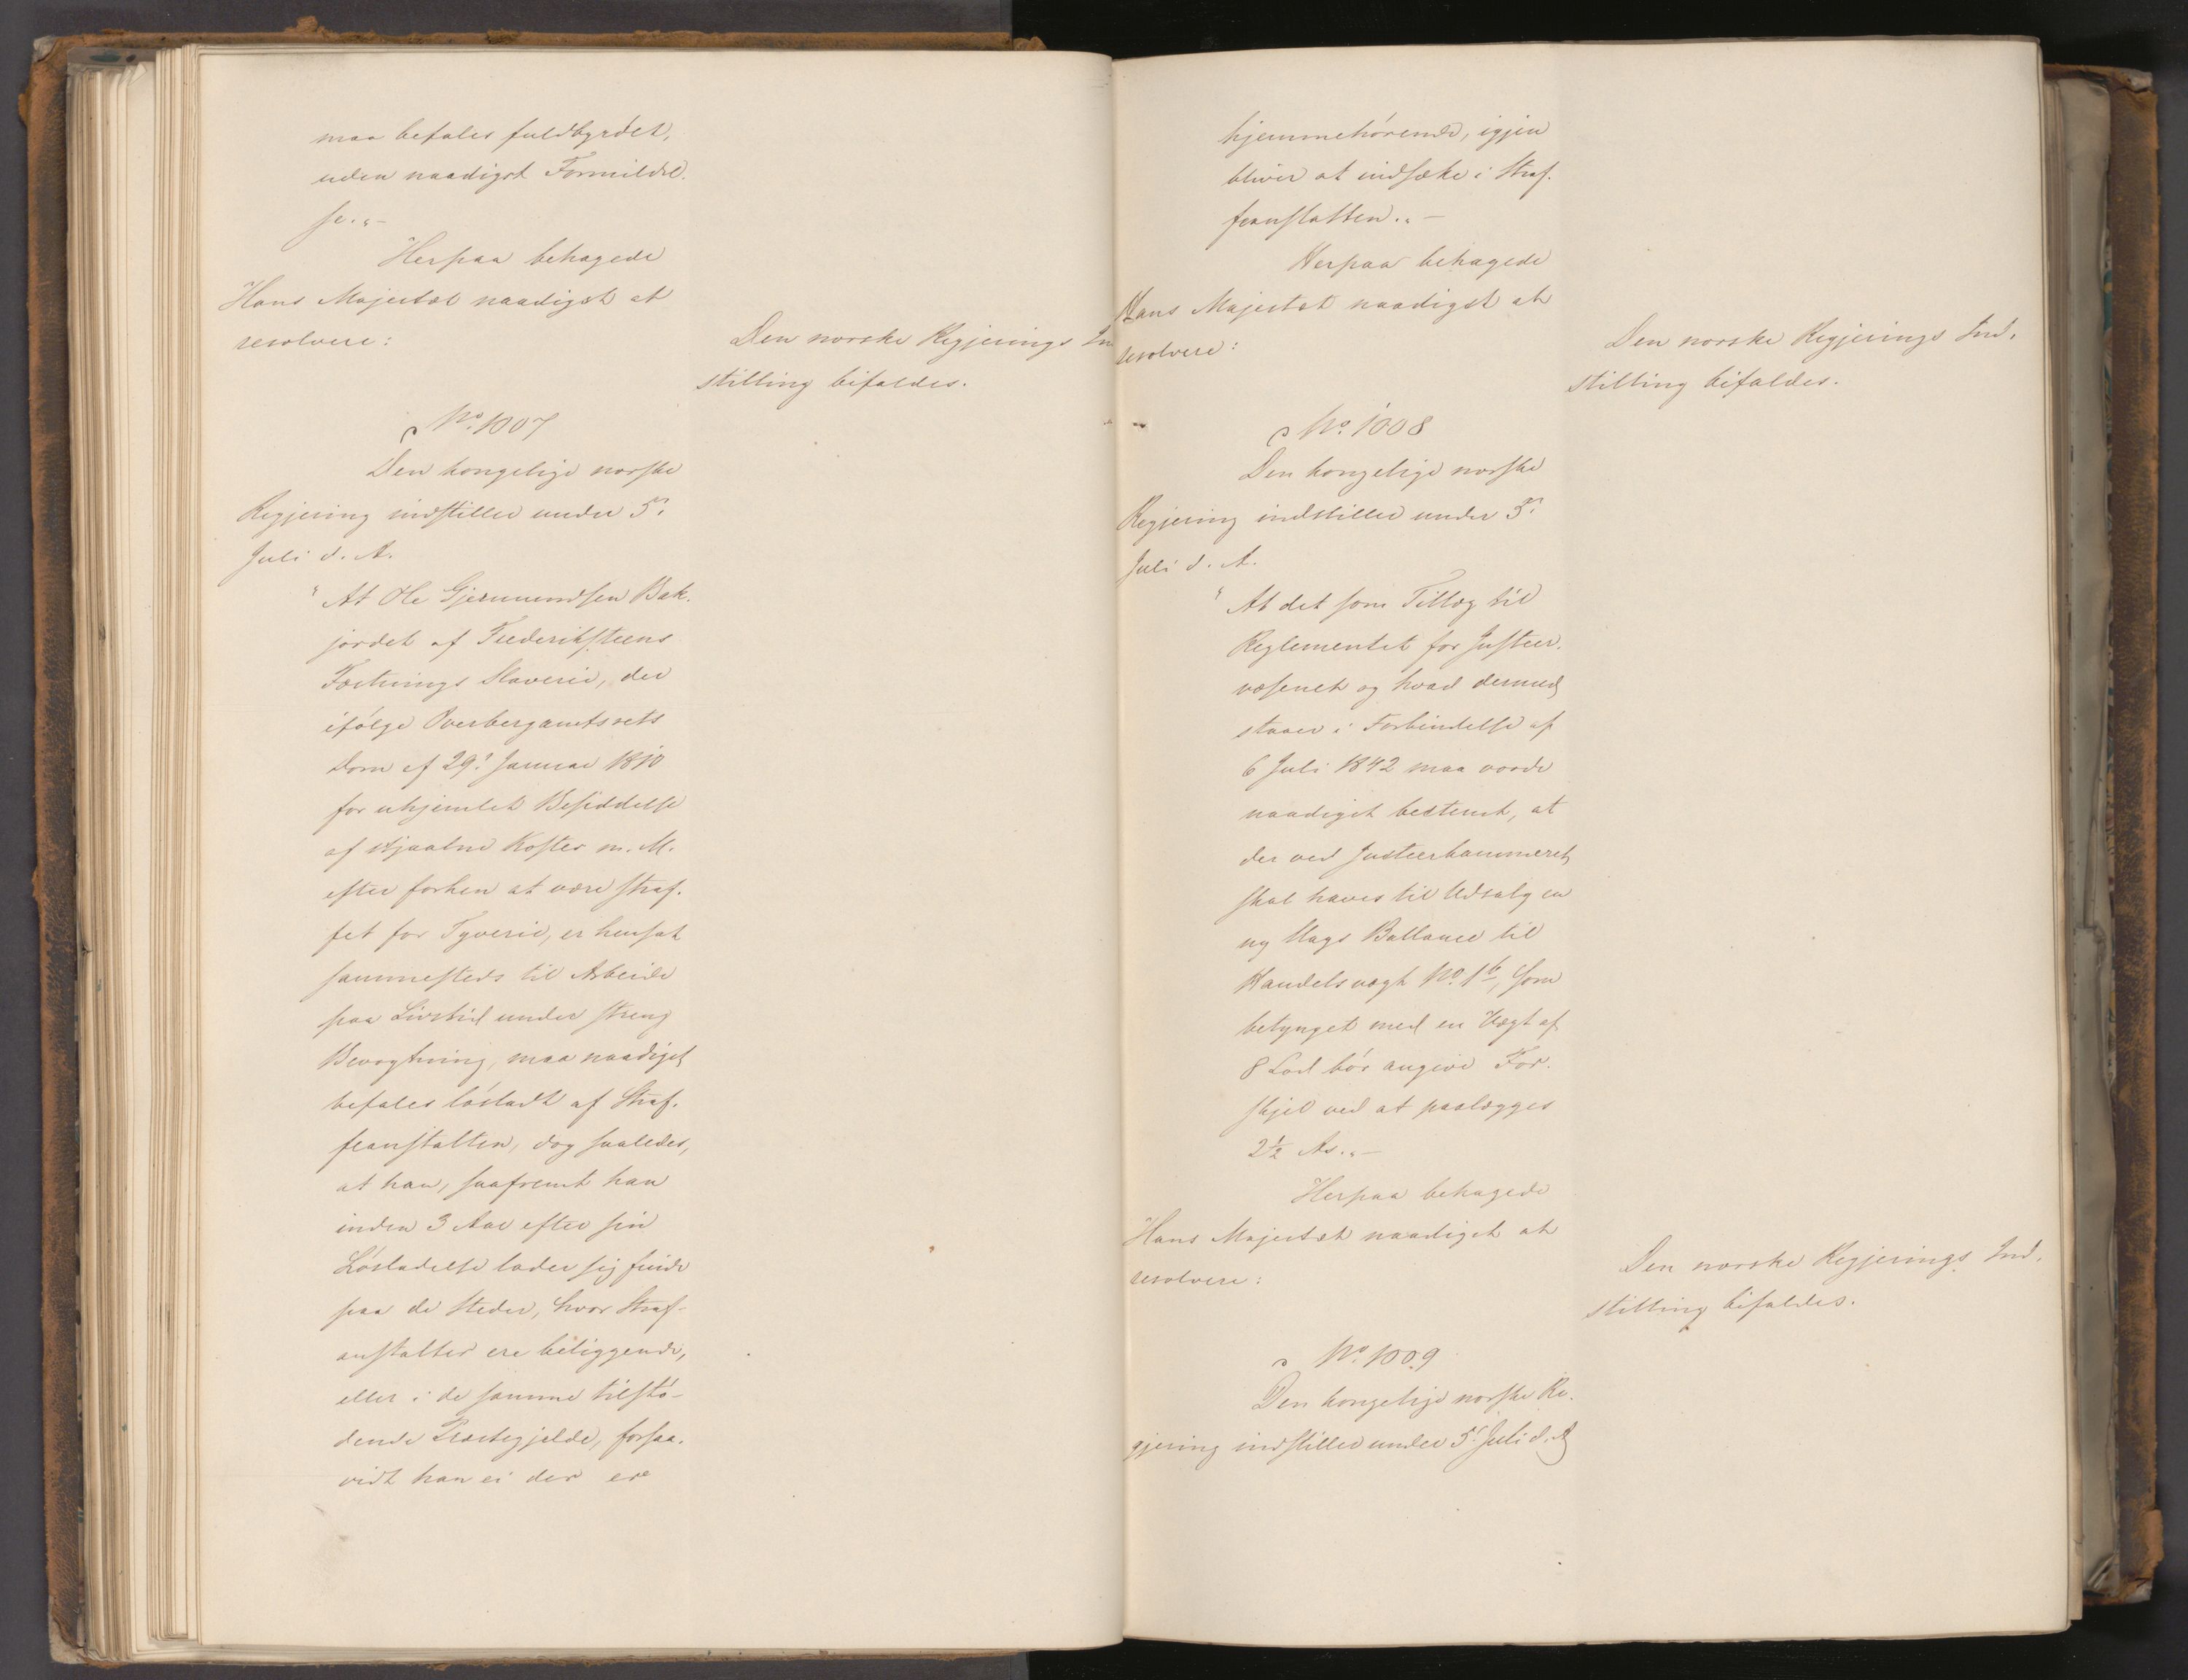 maa befales fuldbyrdet,
uden naadigst Formildel-
se."-
Herpaa behagede
Hans Majestæt naadigst at
resolvere:
Den norske Regjerings In
stilling bifaldes.
No. 1007
Den kongelige norske
Regjering indstiller under 5.
Juli d. A.
"At Ole Gjermundsen Bak-
jordet af Frederiksteens
Fæstnings Slaverie, der
ifølge Overbergamtsrets
Dom af 29. Januar 1810
for uhjemlet Besiddelse
af stjaalne Koster m. M.
efter forhen at være straf-
fet for Tyverie, er hensat
sammesteds til Arbeide
paa Livstid under streng
Bevogtning, maa naadigst
befales løsladt af Straf-
feanstalten, dog saaledes,
at han, saafremt han
inden 3 Aar efter sin
Løsladelse lader sig finde
paa de Steder, hvor Straf-
anstalter ere beliggende,
eller i de samme tilstø-
dende Præstegjelde, forsaa-
vidt han ei der er
hjemmehørende, igjen
bliver at indsætte i Straf-
feanstalten."-
Herpaa behagede
Hans Majestæt naadigst at
resolvere:
Den norske Regjerings Ind-
stilling bifaldes.
No. 1008
Den kongelige norske
Regjering indstiller under 5.
Juli d. A.
"At det som Tillæg til
Reglementet for Justeer-
væsenet og hvad dermed
staaer i Forbindelse af
6 Juli 1842 maa vorde
naadigst bestemt, at
der ved Justeerkammeret
skal haves til Udsalg en
ny Slags Ballance til
Handelsvægt No. 1b, som
betynget med en Vægt af
8 Lod bør angive For-
skjel ved at paalægges
2½ As."-
Herpaa behagede
Hans Majestæt naadigst at
resolvere:
Den norske Regjerings Ind-
stilling bifaldes.
No. 1009
Den kongelige norske Re-
gjering indstiller under 5. Juli d. A